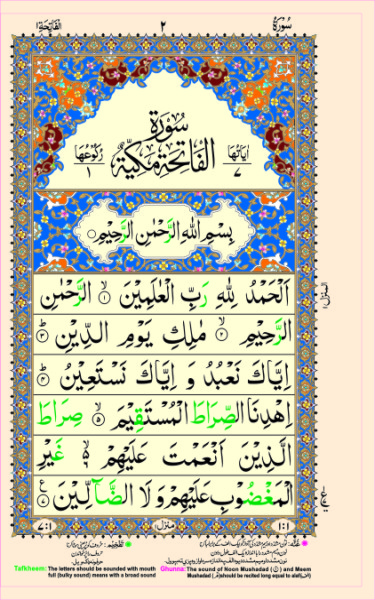 سُوْرَةُ ٢ اَلْفَاتِحَةِ ١
سُوْرَةُ
اٰيَاتُهَا ٧ الْفَاتِحَةِ مَكِّيَّةٌ رُكُوْعُهَا ١
بِسْمِ اللّٰهِ الرَّحْمٰنِ الرَّحِيْمِ ○
اَلْحَمْدُ لِلّٰهِ رَبِّ الْعٰلَمِيْنَ ۙ﴿۱﴾ الرَّحْمٰنِ
الرَّحِيْمِ ۙ﴿۲﴾ مٰلِكِ يَوْمِ الدِّيْنِ ؕ﴿۳﴾
اِيَّاكَ نَعْبُدُ وَ اِيَّاكَ نَسْتَعِيْنُ ؕ﴿۴﴾
اِهْدِنَا الصِّرَاطَ الْمُسْتَقِيْمَ ۙ﴿۵﴾ صِرَاطَ
الَّذِيْنَ اَنْعَمْتَ عَلَيْهِمْ ۙ۬﴿۶﴾ غَيْرِ
الْمَغْضُوْبِ عَلَيْهِمْ وَ لَا الضَّآلِّيْنَ
١:١ منزل ١ ٧:١
Ghunna: The sound of Noon Mushadad (نّ) and Meem
Mushadad (مّ) should be recited long equal to alaf (الف)
Tafkheem: The letters should be sounded with mouth
full (bulky sound) means with a broad sound